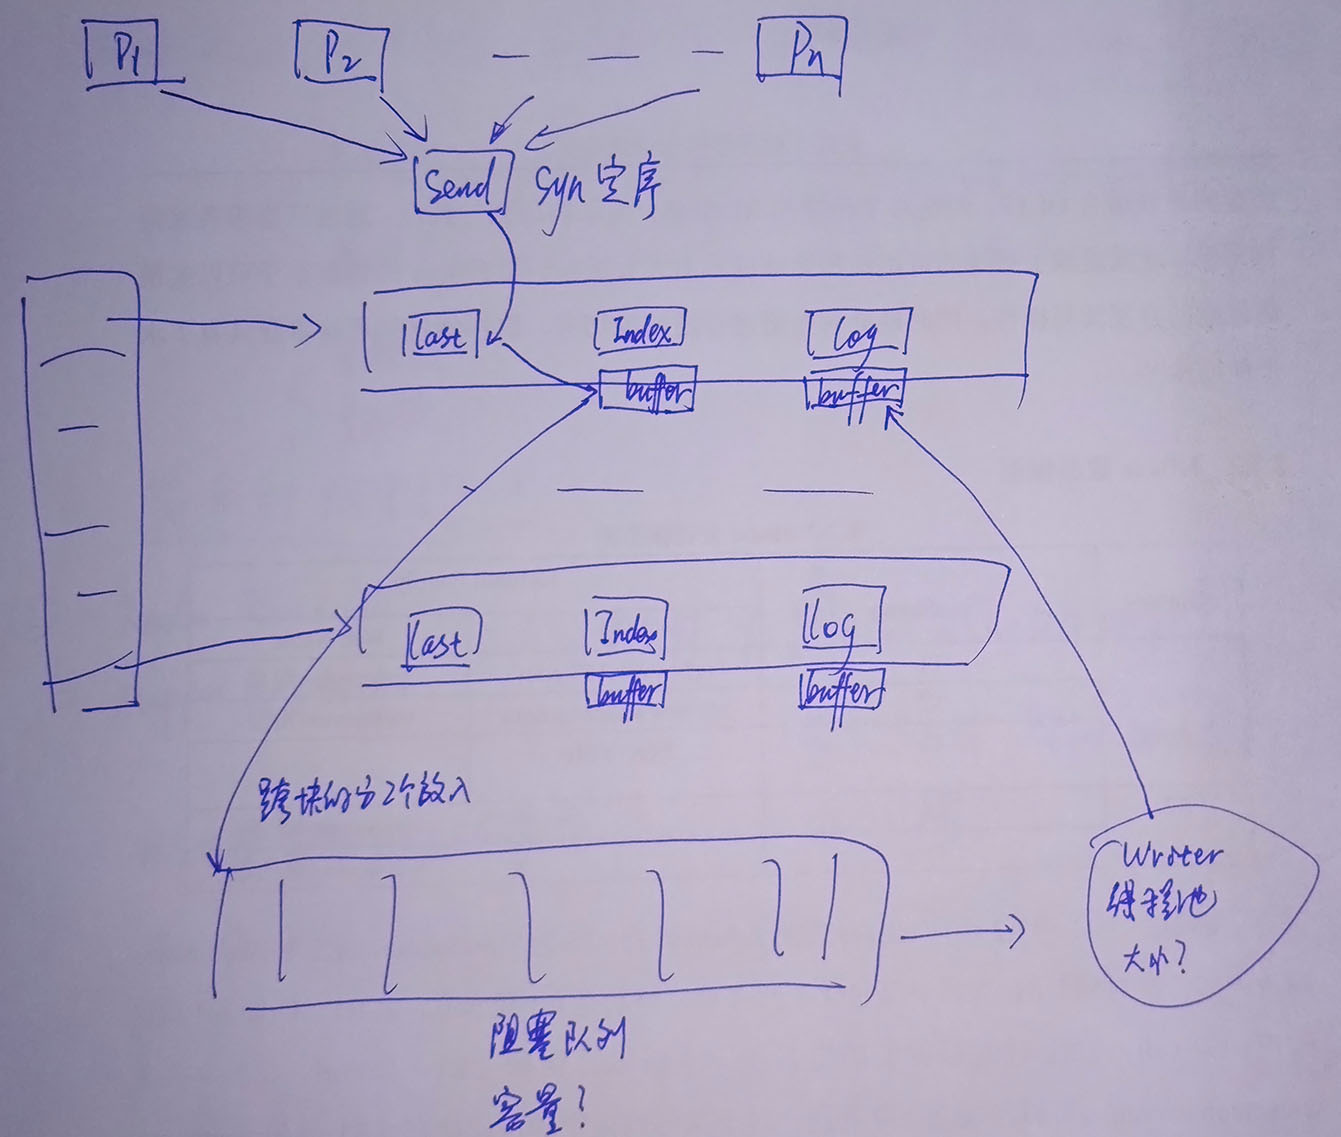 P1 P2 Pn
Send Syn定序
last Index log
buffer buffer
last Index log
buffer buffer
跨块的分2个放入
Wroter
线程池
大小?
阻塞队列
容量?